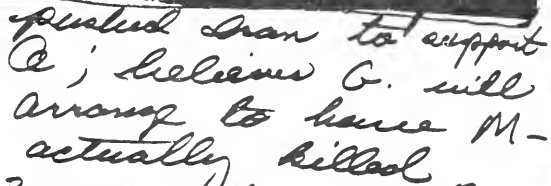 pushed Iran to support
Q; believes G. will
arrange to have M-
actually killed